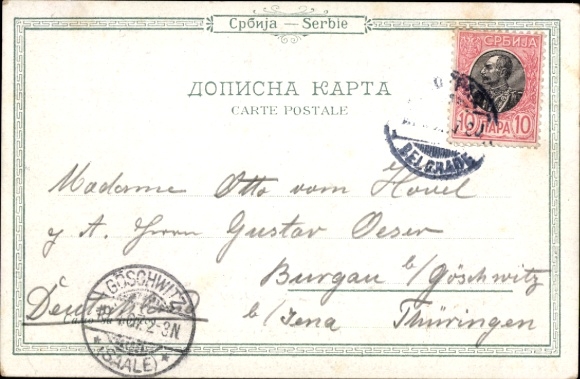 Србија — Serbie
СРБИЈА
10 ПАРА 10
ДОПИСНА КАРТА
CARTE POSTALE
BELGRADE
Madame Otto vom Hövel
p. A. Herrn Gustav Oeser
Burgau b/Göschwitz
b/Jena Thüringen
GÖSCHWITZ
2-3N
* (SAALE) *